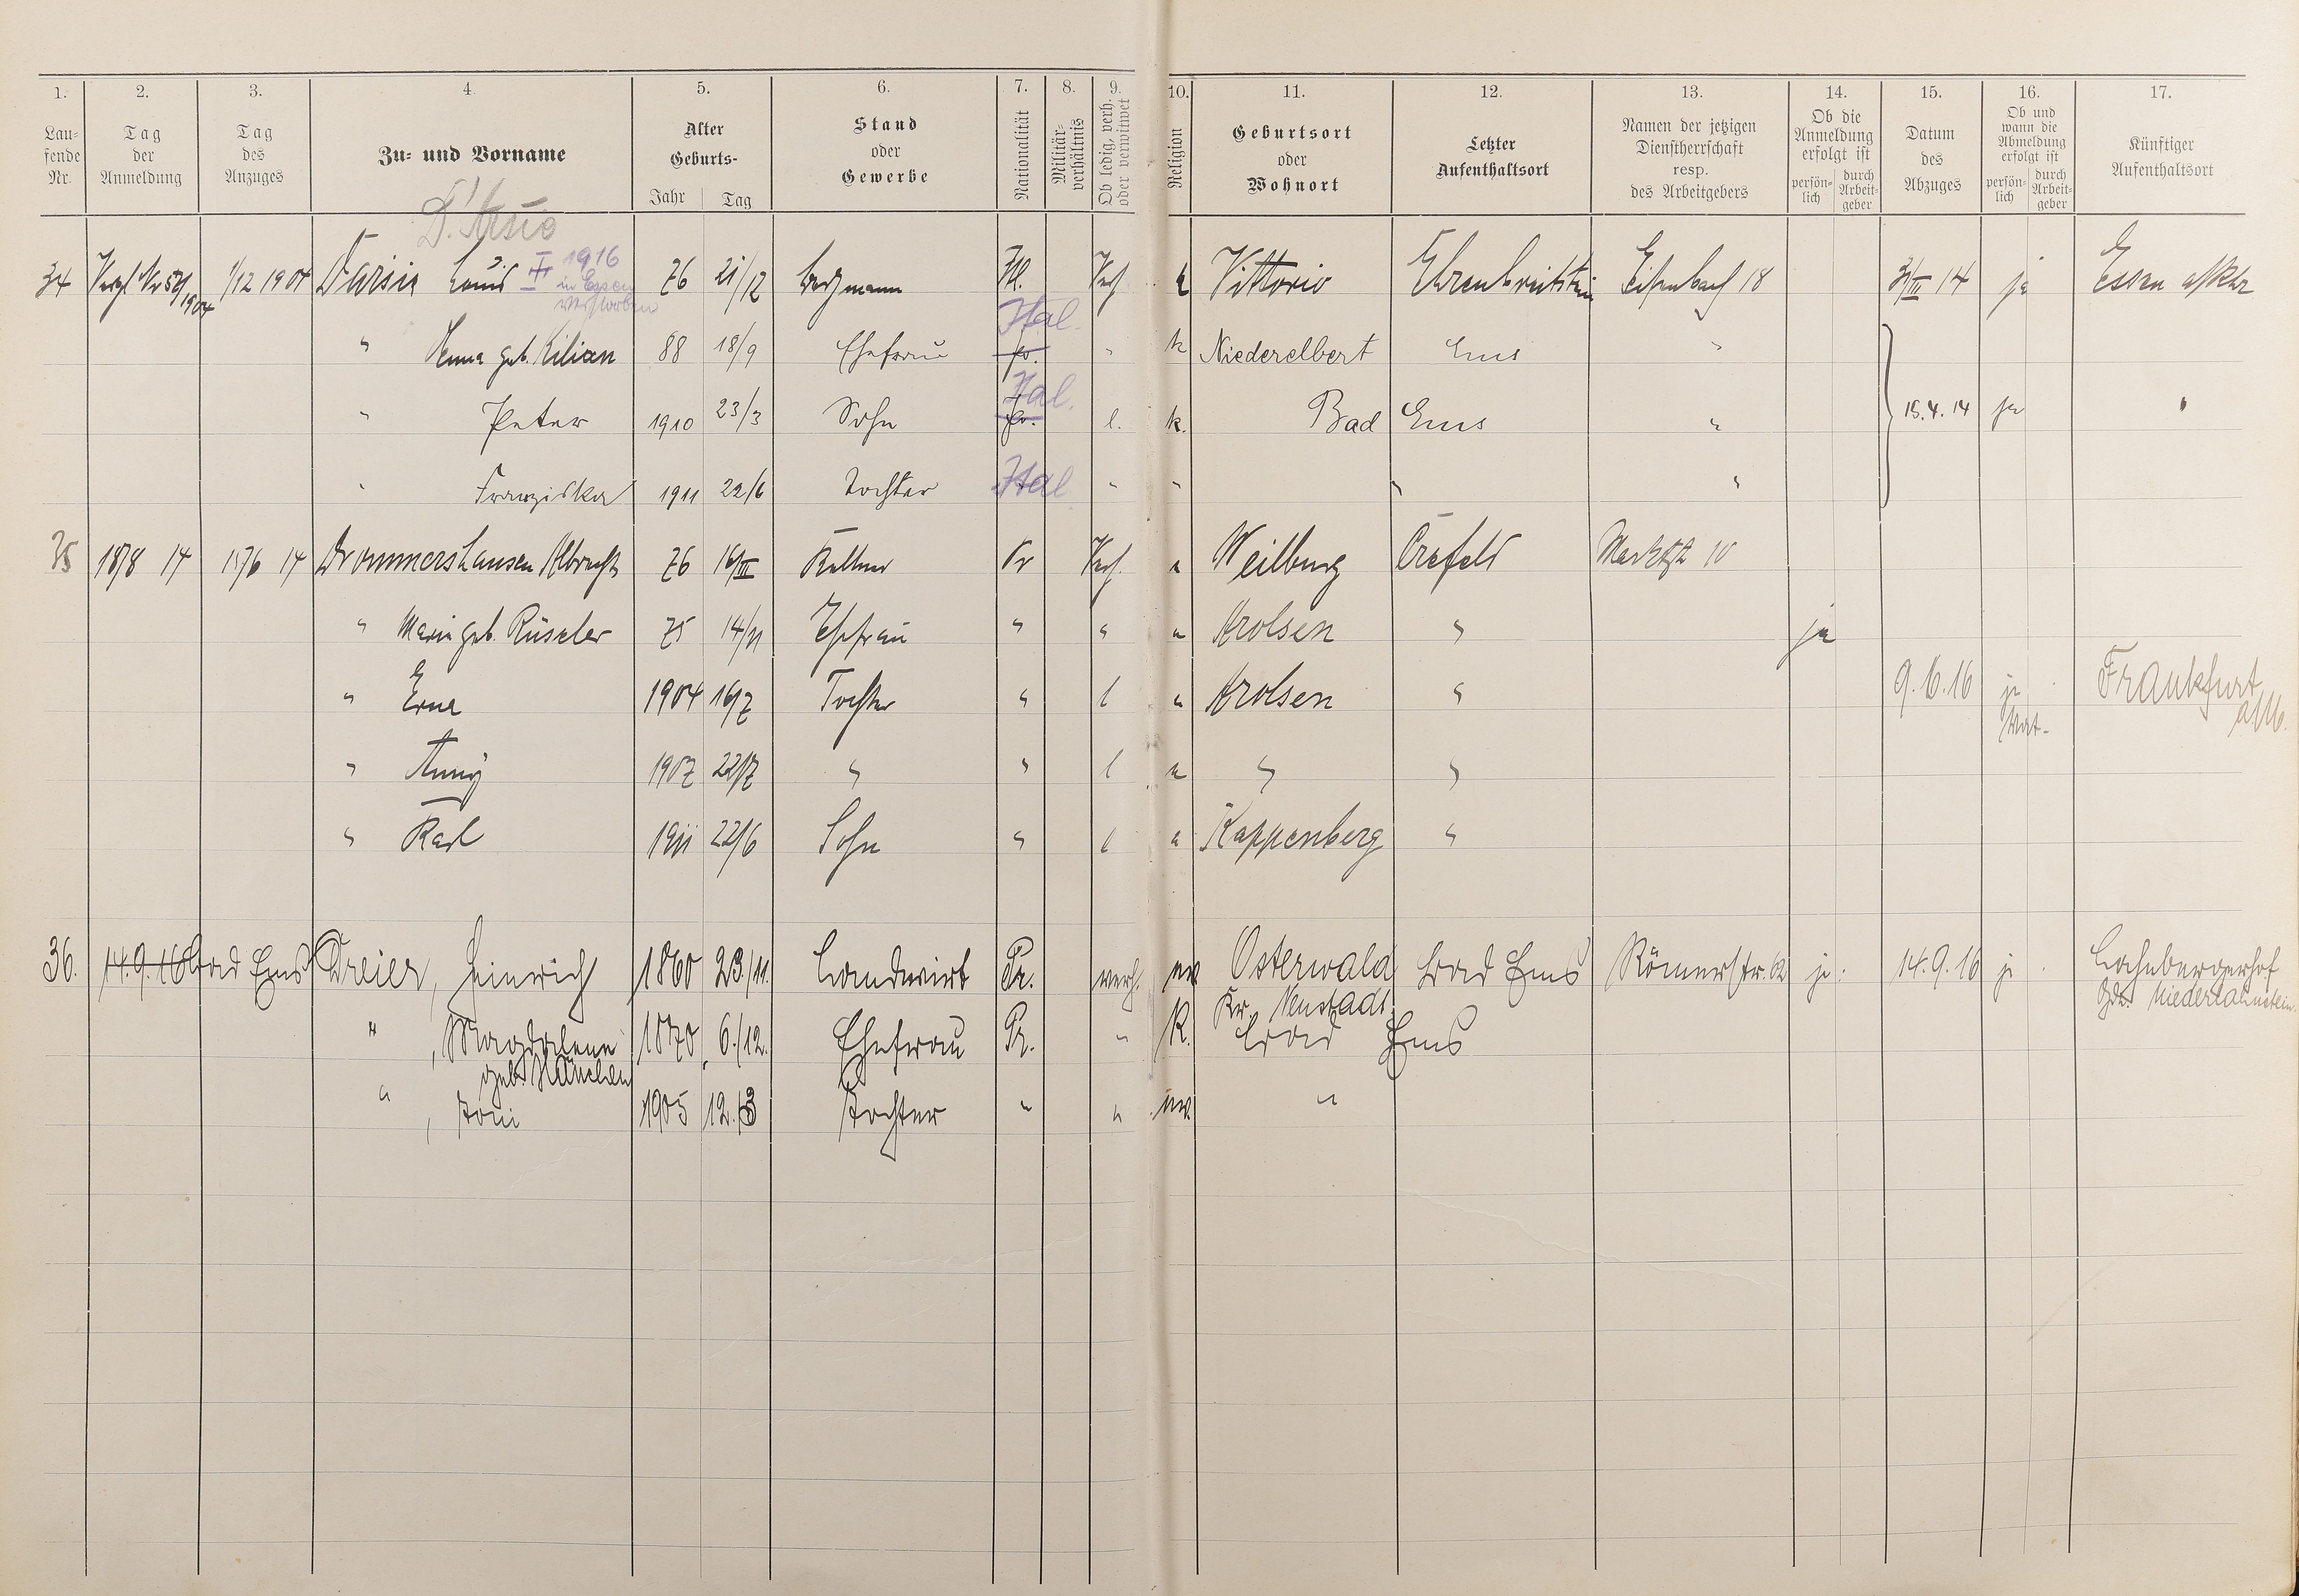 1. 2. 3. 4. 5. 6. 7. 8. 9. 10. 11. 12. 13. 14. 15. 16. 17.
Lau-
fende
Nr.
Tag
der
Anmeldung
Tag
des
Anzuges
Zu- und Vorname
Alter
Geburts-
Jahr Tag
Stand
oder
Gewerbe
Nationalität
Militär-
verhältnis
Ob ledig, verh.
oder verwitwet
Religion
Geburtsort
oder
Wohnort
Letzter
Aufenthaltsort
Namen der jetzigen
Dienstherrschaft
resp.
des Arbeitgebers
Ob die
Anmeldung
erfolgt ist
persön-
lich
durch
Arbeit-
geber
Datum
des
Abzuges
Ob und
wann die
Abmeldung
erfolgt ist
persön-
lich
durch
Arbeit-
geber
Künftiger
Aufenthaltsort
34 1/12 1904 Louis 1916 76 21/12 Bergmann Itl. Verh k Vittorio Ehrenbreitstein Eisenbach 18 31/III 14 ja Essen a/Ruhr
in Essen
verstorben
" geb. Kilian 88 18/9 Ehefrau pr. Ital. " k Niederelbert Ems "
" Peter 1910 23/3 Sohn pr. Ital. l. k. Bad Ems " 15.4.14 ja "
" Franziska 1911 22/6 Tochter Ital. " " " "
35 18/8 14 15/6 14 Drommershausen Albrecht 76 16/III Kellner Pr Verh. Weilburg Crefeld 10
" Marie geb. Rüseler 75 14/11 Ehefrau " " " Arolsen " ja
" Erna 1904 16/7 Tochter " l " Arolsen " 9.6.16 ja Frankfurt
a/M.
" Anny 1907 22/7 " " l " " "
" Karl 1911 22/6 Sohn " l " Kappenberg "
36. 14.9.16 Bad Ems Dreier, Heinrich 1860 23./11. Landwirt Pr. verh. ev. Osterwald Bad Ems Römerstr. 62 ja. 14.9.16 ja Lahnbergerhof
Kr. Neustadt Niederlahnstein.
" , Magdalene 1870 6./12. Ehefrau Pr. " K. Bad Ems
geb.
" , Toni 1905 12./3 Tochter " " ev. "